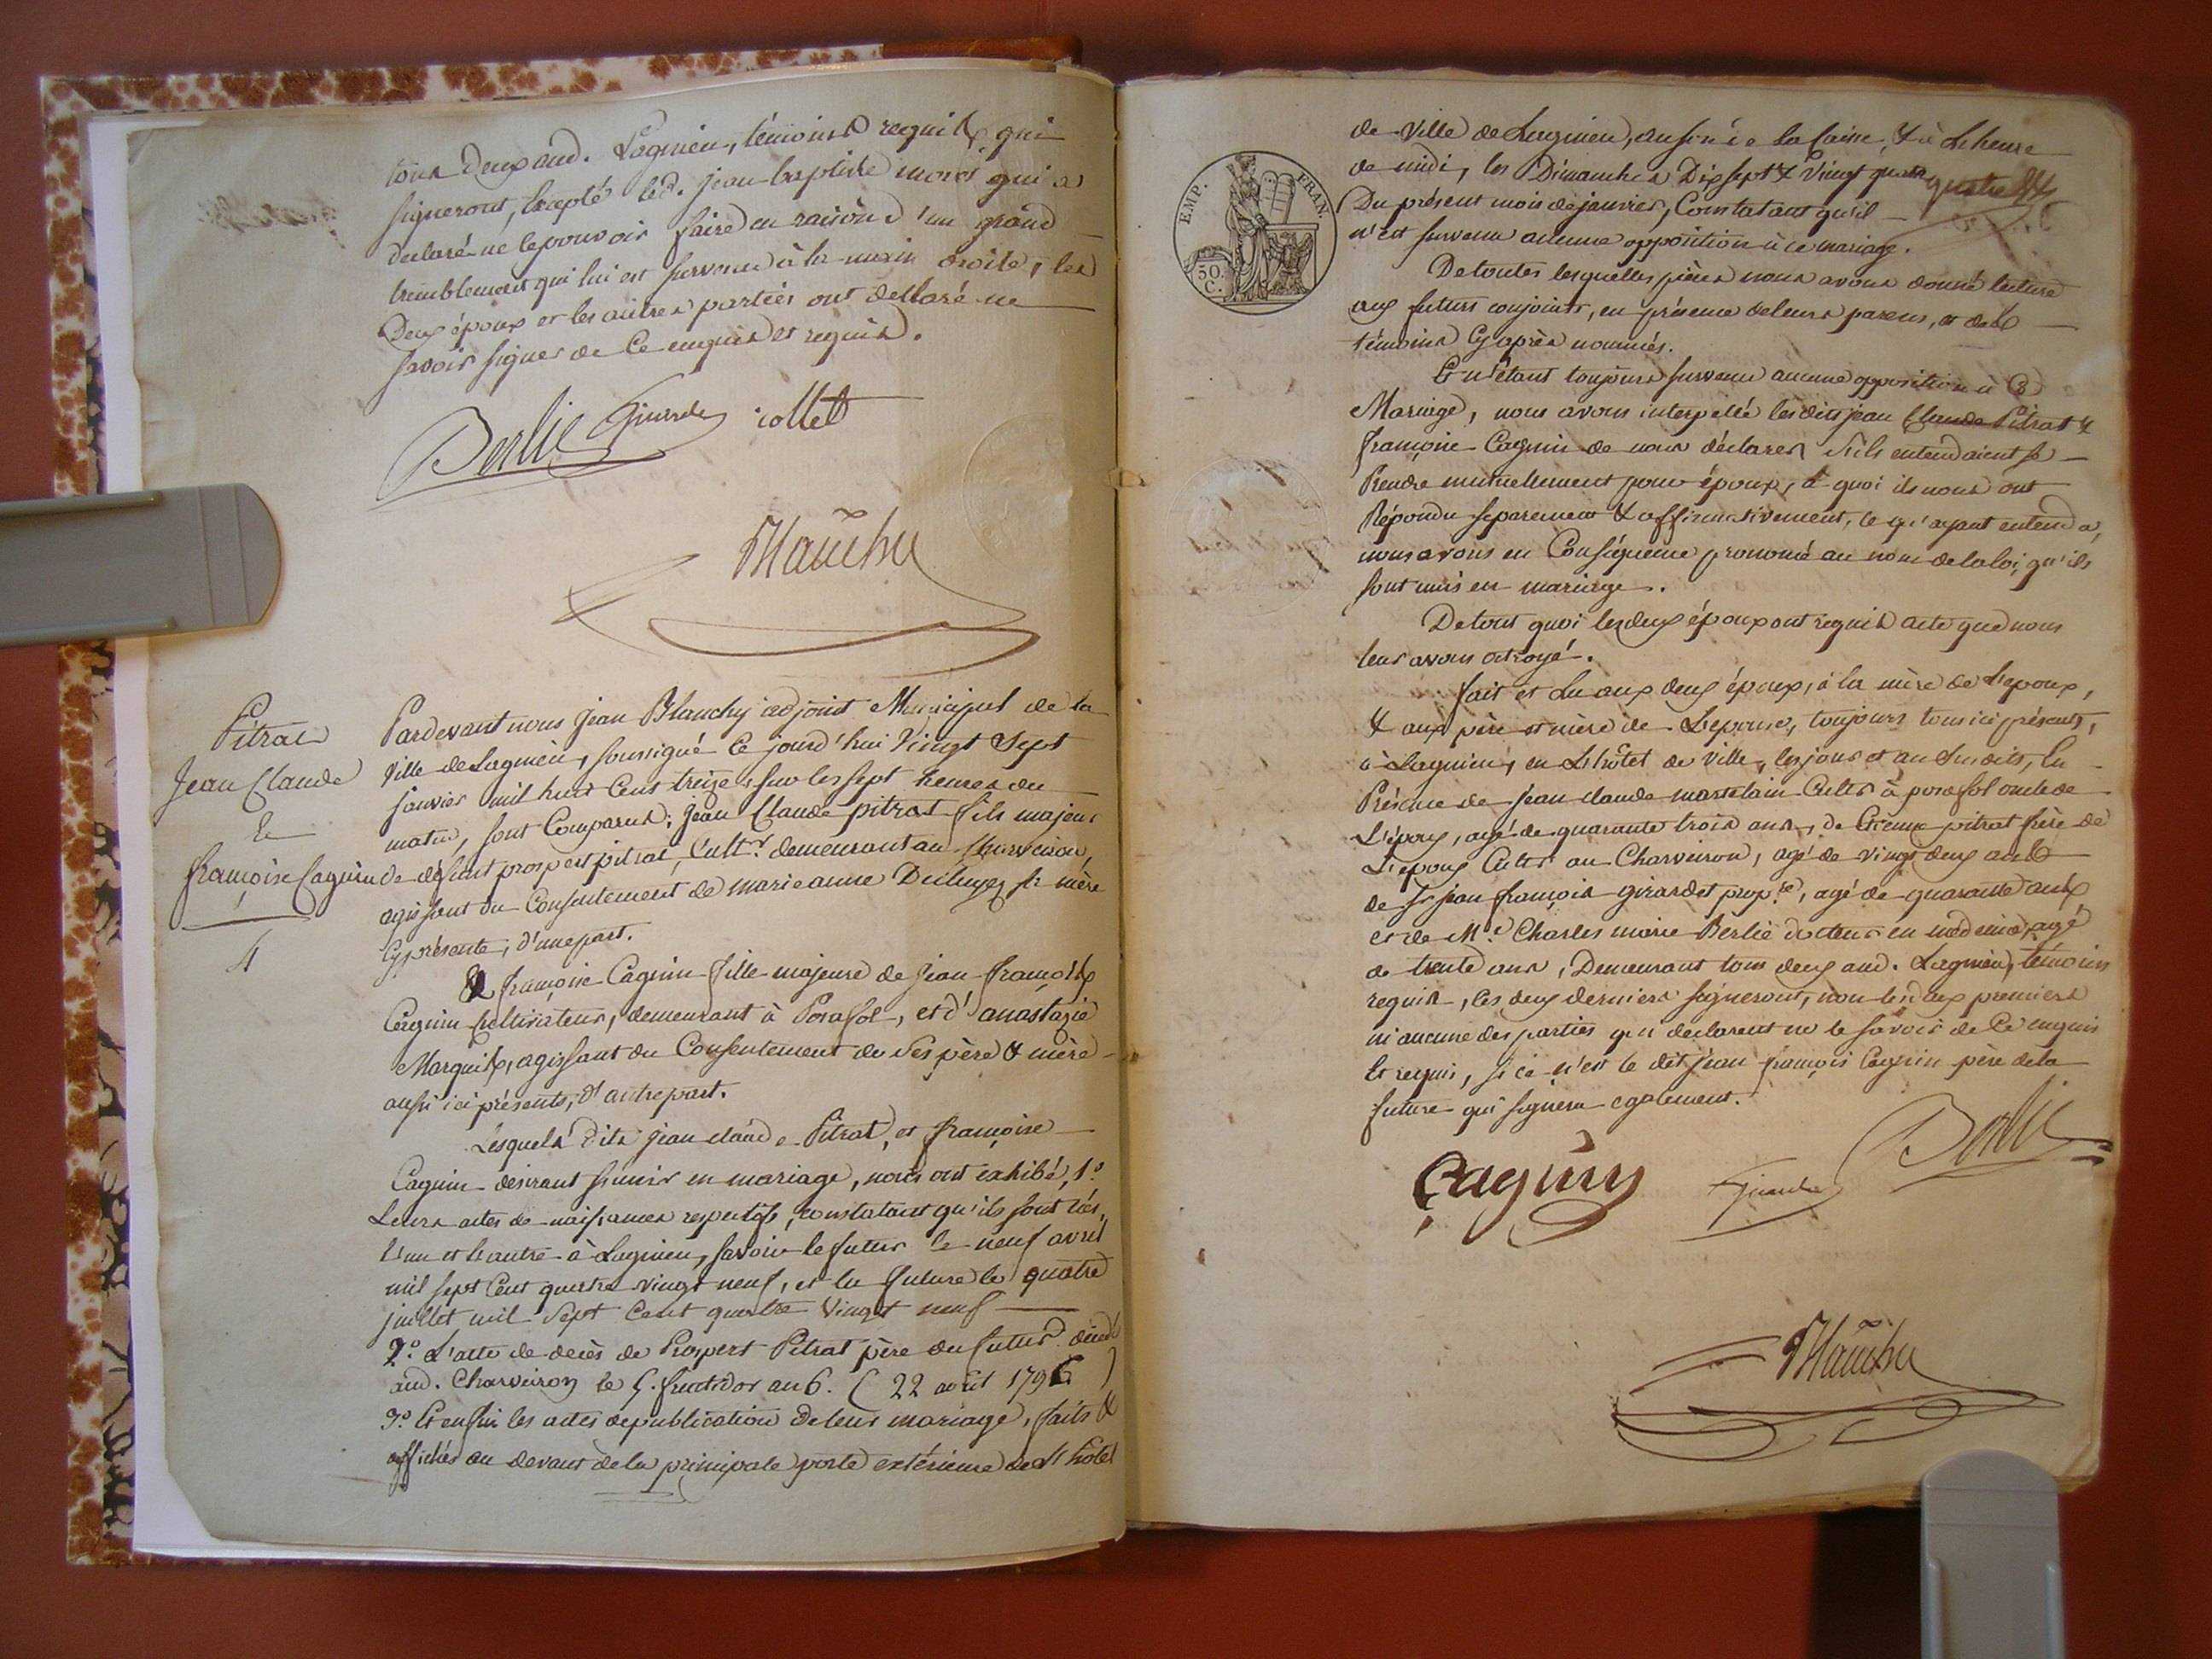 tous deux aud. Lagnieu, témoins requis, qui
signeront, excepté led. jean baptiste moret qui a
declaré ne le pouvoir faire en raison d'un grand
tremblement qui lui est survenu à la main droite, les
Deux époux et les autres parties ont declaré ne
savoir signer de ce enquis et requis.
Berlie Girardet collet
Blanchy
Pitrat
Jean Claude
&
françoise Caguin
4
Pardevant nous Jean Blanchy adjoint Municipal de la
Ville de Lagnieu, soussigné ce jourd'hui Vingt Sept
janvier mil huit Cent treize sur les sept heures du
matin, sont Comparus: Jean Claude pitrat fils majeur
de défunt prospert pitrat, Cultr. demeurant au Charveiron,
agissant du Consentement de marie anne sa mère
Cy présente, d'une part.
& françoise Caguin fille majeure de Jean françois
Caguin Cultivateur, demeurant à Posafol, et d'anastazie
Marquis, agissant du Consentement de ses père & mère
aussi ici présents, d'autre part.
Lesquels dits jean claude Pitrat, et françoise
Caguin desirant s'unir en mariage, nous ont exhibé, 1.º
Leurs actes de naissances respectifs, constatant qu'ils sont nés,
L'un et l'autre à Lagnieu, savoir le futur le neuf avril
mil sept Cent quatre vingt neuf, et la future le quatre
juillet mil Sept Cent quatre Vingt neuf
2.º L'acte de décès de Prospert Pitrat père du futur décédé
aud. Charveiron le 5. fructidor an 6. (22 août 1796)
3.º Et enfin les actes de publication de leur mariage, faits &
affichés au devant de la principale porte extérieure de L'hôtel
EMP. FRAN.
50.
C.
de Ville de Lagnieu, & à L'heure
de midi, les Dimanches Dix sept & Vingt quatre
Du présent mois de janvier, Constatant qu'il
n'est survenu aucune opposition à ce mariage.
De toutes lesquelles pièces nous avons donné lecture
aux futurs conjoints, en présence de leurs parens, et des
témoins Cy après nommés.
Et n'étant toujours survenu aucune opposition à Ce
Mariage, nous avons interpellé lesdits jean Claude Pitrat &
françoise Caguin de nous déclarer s'ils entendaient se
Prendre mutuellement pour époux, à quoi ils nous ont
Répondu séparement & affirmativement, ce qu'ayant entendu,
nous avons en Conséquence prononcé au nom de la loi, qu'ils
sont unis en mariage.
De tout quoi les deux époux ont requis acte que nous
leur avons octroyé.
fait et Lu aux deux époux, à la mère de L'epoux,
& aux père et mère de L'epouse, toujours tous ici présents,
à Lagnieu, en L'hôtel de Ville, les jour et an susdits, En
Présence de Jean claude martelain Cultr à posafol oncle de
L'époux, agé de quarante trois ans, de Etienne pitrat frère de
L'epoux Cultr au Charveiron, agé de vingt deux ans
de Sr jean françois girardet propre., agé de quarante ans,
et de Mr. Charles marie Berlie docteur en medecine, agé
de trente ans, Demeurant tous deux aud. Lagnieu, témoins
requis, les deux derniers signeront, non les deux premiers
ni aucune des parties qui declarent ne le savoir de Ce enquis
Et requis, si ce n'est le dit jean françois Caguin père de la
future qui signera egalement.
Caguin Girardet Berlie
Blanchy